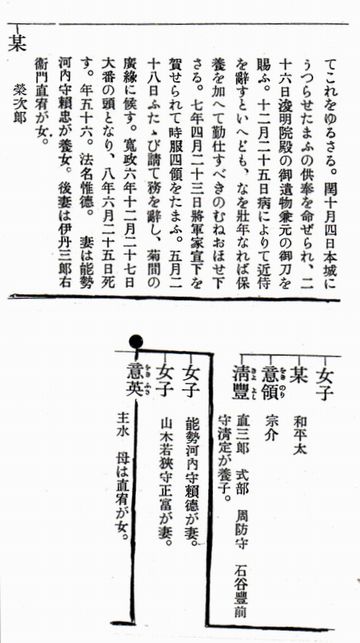 てこれをゆるさる。閏十月四日本城に
うつらせたまふの供奉を命ぜられ、二
十六日浚明院殿の御遺物兼元の御刀を
賜ふ。十二月二十五日病によりて近侍
を辭すといへども、なを壯年なれば保
養を加へて勤仕すべきのむねおほせ下
さる。七年四月二十三日將軍家宣下を
賀せられて時服四領をたまふ。五月二
十八日ふたゝび請て務を辭し、菊間の
廣緣に候す。寬政六年十二月二十七日
大番の頭となり、八年六月二十五日死
す。年五十六。法名惟德。 妻は能勢
河内守賴忠が養女。後妻は伊丹三郎右
衞門直宥が女。
某 榮次郎
女子
某 和平太
意領 をきのり 宗介
淸豐 きよとよ 直三郎 式部 周防守 石谷豐前
守淸定が養子。
女子 能勢河内守賴德が妻。
女子 山木若狹守正富が妻。
意英 をきふさ 主水 母は直宥が女。